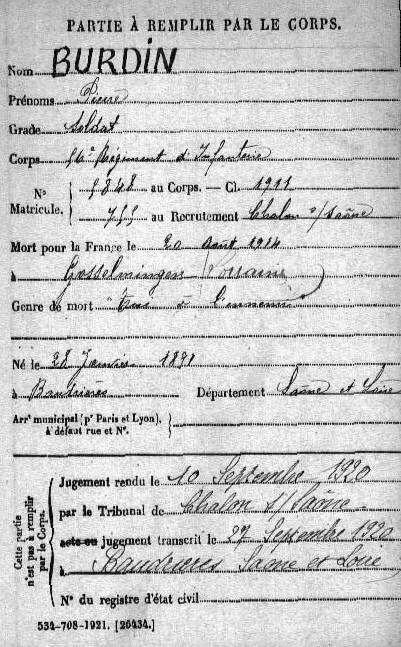 PARTIE À REMPLIR PAR LE CORPS.
Nom BURDIN
Prénoms Pierre
Grade Soldat
Corps Régiment d'Infanterie
N° Matricule. { au Corps. — Cl. 1911
au Recrutement Chalon s/Saône
Mort pour la France le 20 août 1914
à Gosselmingen (Lorraine)
Genre de mort Tué à l'ennemi
Né le 28 Janvier 1891
à Baudrières Département Saône et Loire
Arrt municipal (pr Paris et Lyon), à défaut rue et N°.
Cette partie n'est pas à remplir par le Corps.
Jugement rendu le 10 Septembre 1920
par le Tribunal de Chalon s/Saône
acte ou jugement transcrit le 27 Septembre 1920
à Baudrières Saône et Loire
N° du registre d'état civil
534-708-1921. [26434.]